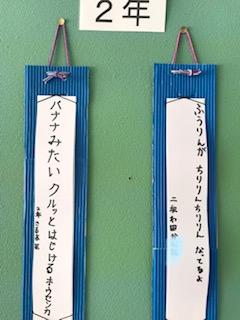 2年
ふうりんが ちりりんちりりん なってるよ
二年 和田
バナナみたい クルッとはじける ホウセンカ
2年